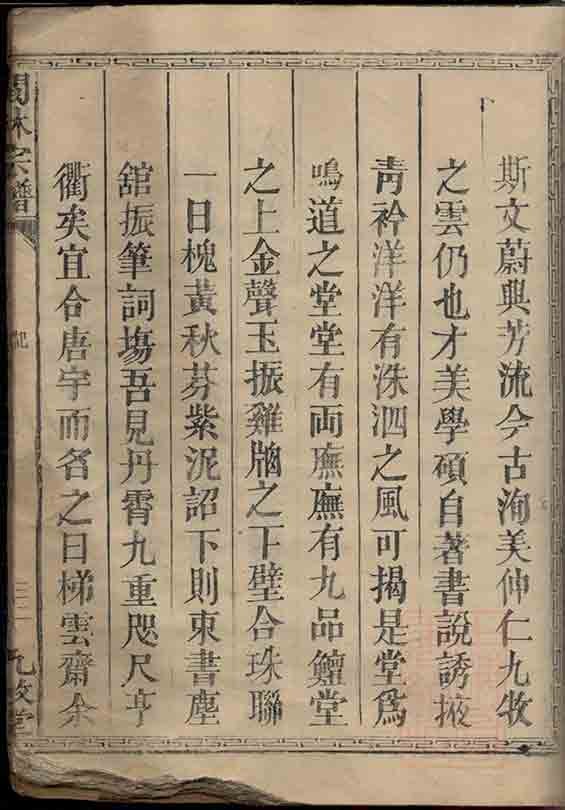 斯文蔚興芳流今古洵美仲仁九牧
之雲仍也才美學碩自著書說誘掖
靑衿洋洋有洙泗之風可揭是堂爲
鳴道之堂堂有両廡廡有九品鱣堂
之上金聲玉振雞牕之下璧合珠聯
一日槐黃秋芬紫泥詔下則束書塵
舘振筆詞塲吾見丹霄九重咫尺亨
衢矣宜合唐宇而名之曰梯雲齋余
林宗譜
記
九牧堂